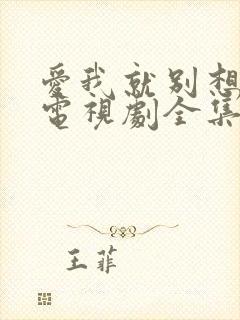 愛我就別想
電視劇全集
王菲